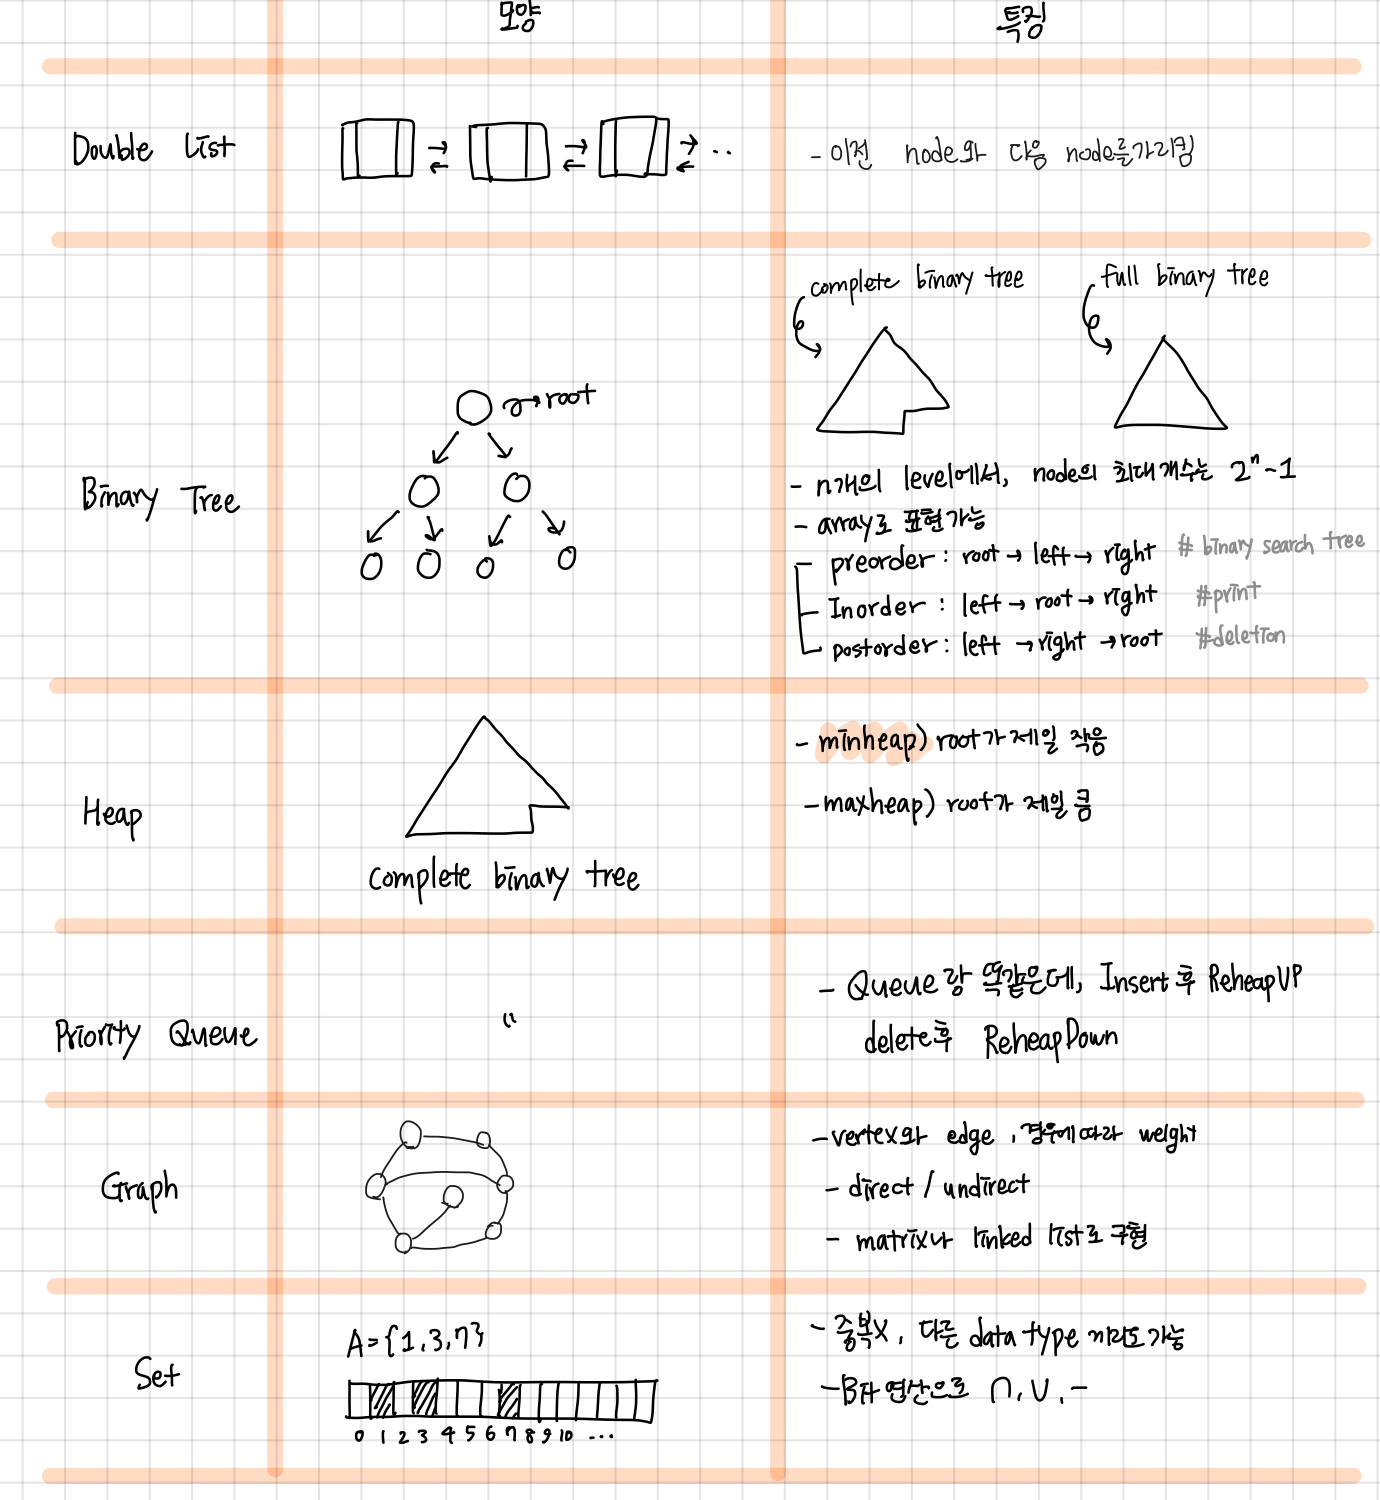 모양
특징
Double List
- 이전 node와 다음 node를 가리킴
complete binary tree
full binary tree
root
Binary Tree
- n개의 level에서, node의 최대 개수는 2ⁿ-1
- array로 표현가능
- preorder : root → left → right # binary search tree
- Inorder : left → root → right #print
- postorder : left → right → root #deletion
Heap
complete binary tree
- minheap) root가 제일 작음
- maxheap) root가 제일 큼
Priority Queue
"
- Queue랑 똑같은데, Insert 후 ReheapUP
delete 후 ReheapDown
Graph
- vertex와 edge, 경우에따라 weight
- direct / undirect
- matrix나 linked list로 구현
Set
A={1,3,7}
0 1 2 3 4 5 6 7 8 9 10 ...
- 중복X, 다른 data type끼리도 가능
- 연산으로 ∩, ∪, -